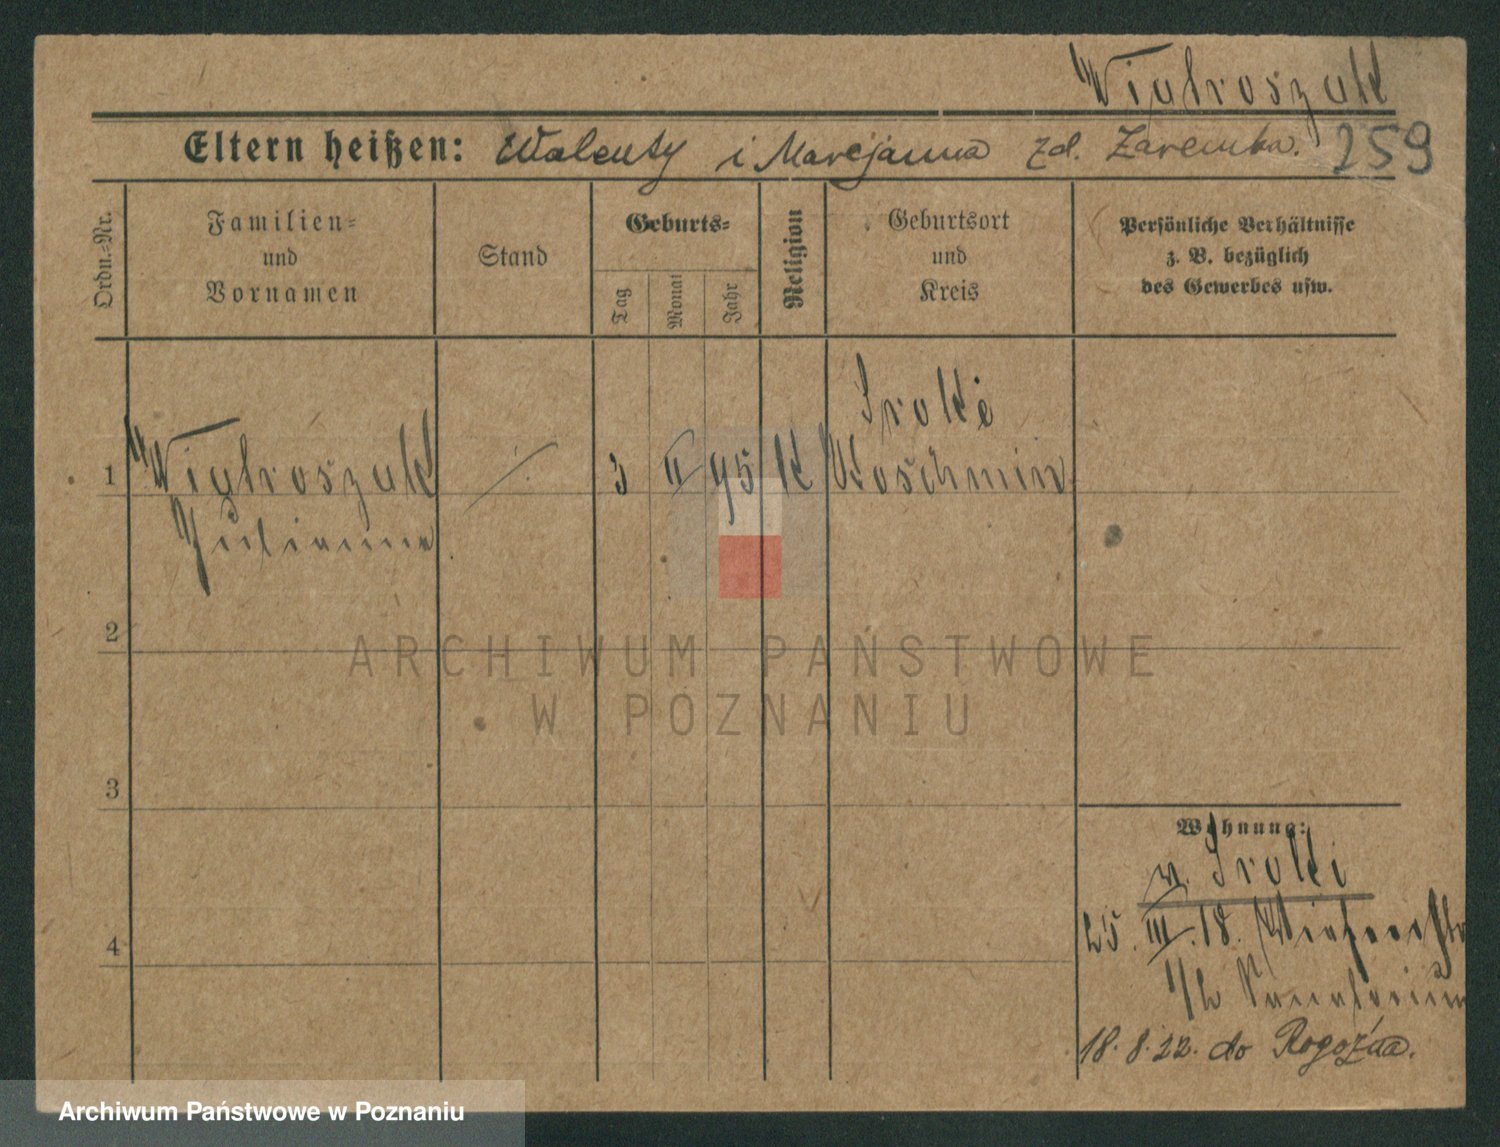 Wiatroszak
Eltern heißen: Walenty i Marejanna zd. Zaremba. 259
Ordn.-Nr.
Familien-
und
Vornamen
Stand
Geburts-
Tag
Monat
Jahr
Religion
Geburtsort
und
Kreis
Persönliche Verhältnisse
z. B. bezüglich
des Gewerbes usw.
Trokki
1 Wiatroszak / 3 II 95 K Koschmin
Julianna
2
3
4
Wohnung:
v. Trokki
25. III. 18.
1/2 Sanatorium
18. 8. 22. do Rogoźna.
ARCHIWUM PAŃSTWOWE
W POZNANIU
Archiwum Państwowe w Poznaniu